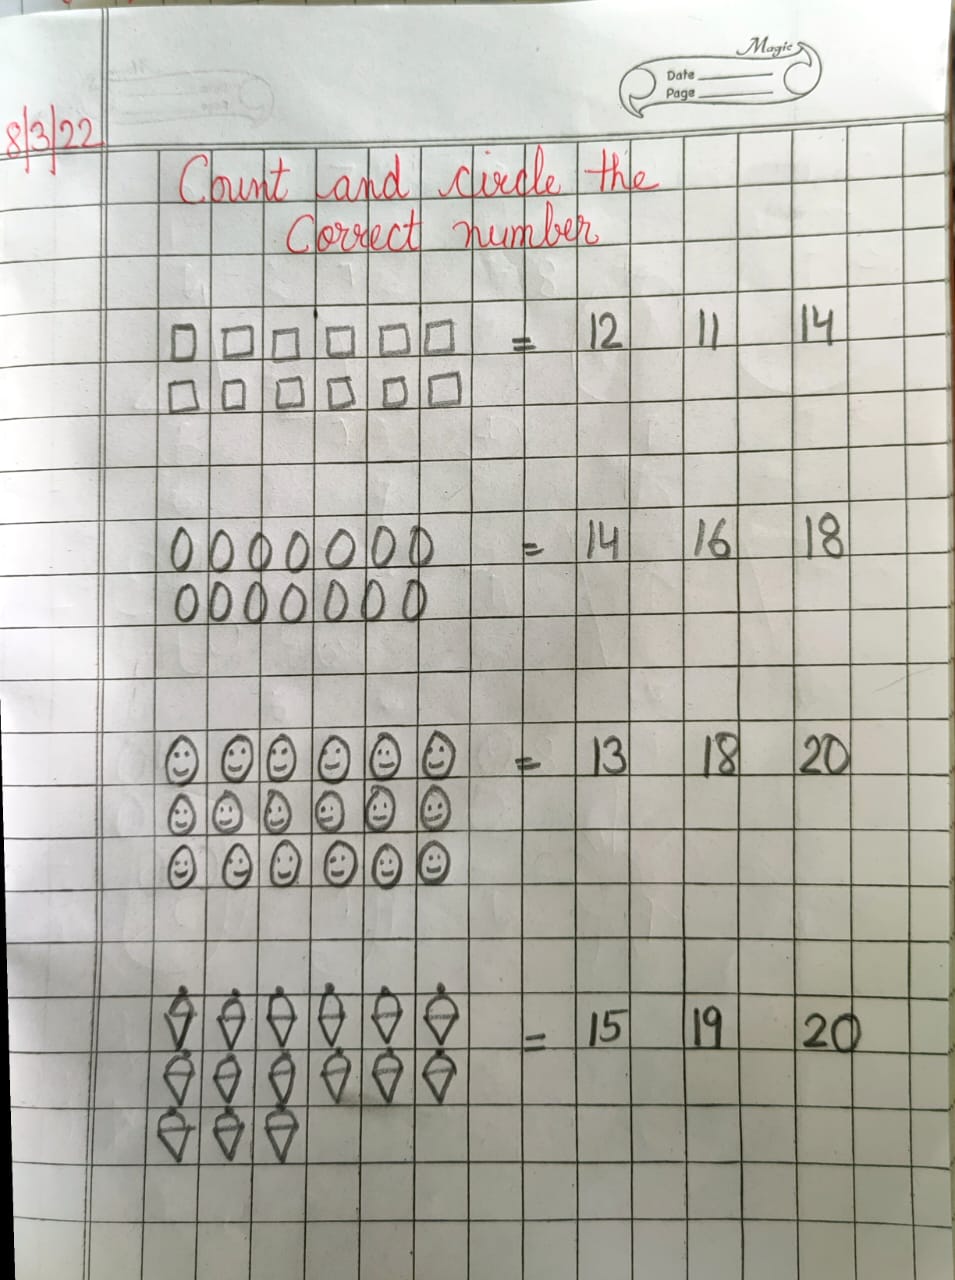 Magic
Date
Page
8/3/22
Count and circle the
Correct number
= 12 11 14
= 14 16 18
= 13 18 20
= 15 19 20